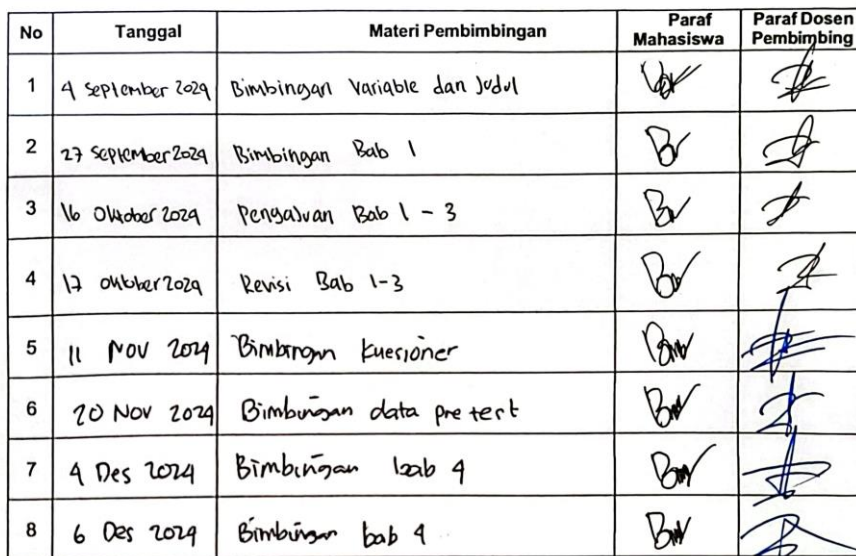 No Tanggal Materi Pembimbingan Paraf Mahasiswa Paraf Dosen Pembimbing
1 4 September 2024 Bimbingan Variable dan Judul
2 27 September 2024 Bimbingan Bab 1
3 16 Oktober 2024 Pengajuan Bab 1 - 3
4 17 Oktober 2024 Revisi Bab 1-3
5 11 Nov 2024 Bimbingan kuesioner
6 20 Nov 2024 Bimbingan data pre test
7 4 Des 2024 Bimbingan bab 4
8 6 Des 2024 Bimbingan bab 4